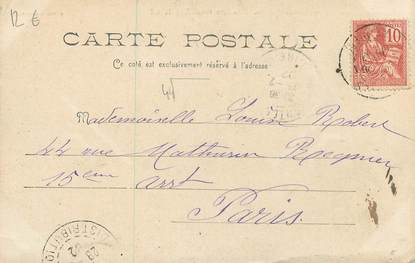 12 €
10
CARTE POSTALE
Ce coté est exclusivement réservé à l'adresse
Mademoiselle Louise Robert
44 rue Mathurin Regnier
15em arrt
Paris
DISTRIBUTIO